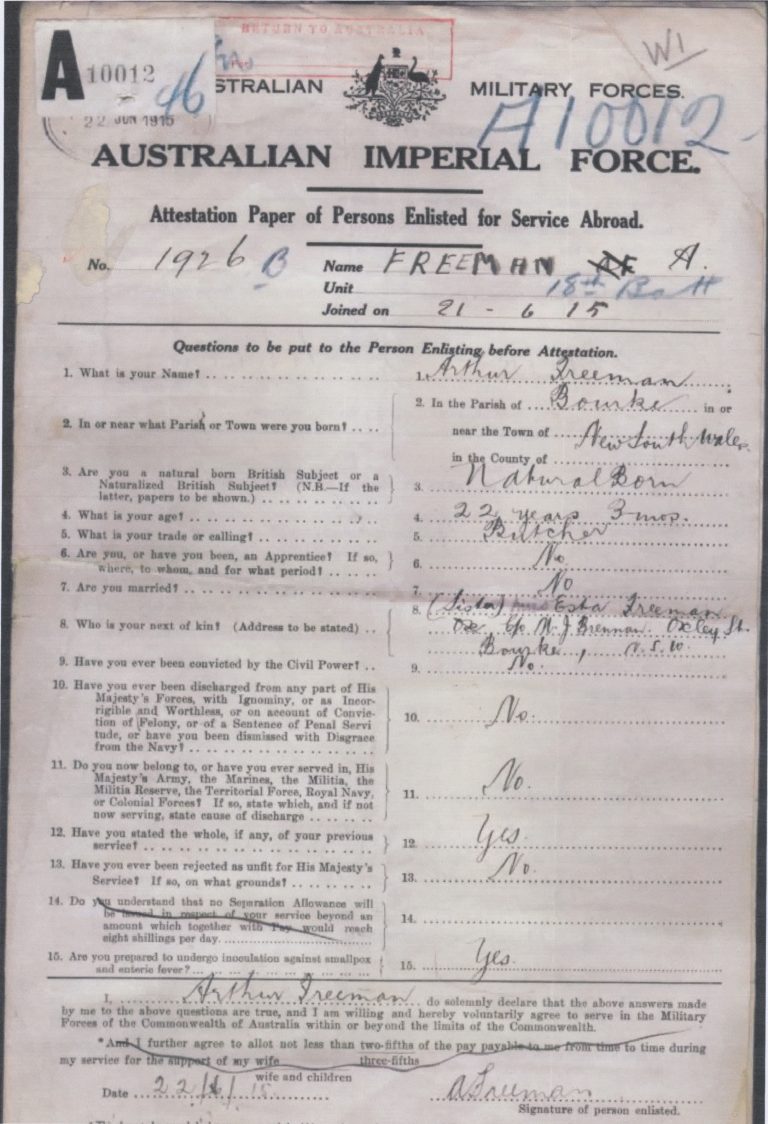 RETURN TO AUSTRALIA
W1
A 10012
46
22 JUN 1915
STRALIAN MILITARY FORCES.
A10012
AUSTRALIAN IMPERIAL FORCE.
Attestation Paper of Persons Enlisted for Service Abroad.
No. 1926 B Name FREEMAN A.
Unit 18th Batt
Joined on 21 - 6 15
Questions to be put to the Person Enlisting before Attestation.
1. What is your Name? 1. Arthur Freeman
2. In or near what Parish or Town were you born? 2. In the Parish of Bourke in or
near the Town of New South Wales
in the County of
3. Are you a natural born British Subject or a
Naturalized British Subject? (N.B.—If the
latter, papers to be shown.) 3. Natural Born
4. What is your age? 4. 22 years 3 mos.
5. What is your trade or calling? 5. Butcher
6. Are you, or have you been, an Apprentice? If so,
where, to whom, and for what period? 6. No
7. Are you married? 7. No
8. Who is your next of kin? (Address to be stated) 8. (Sister) Miss Esta Freeman
c/o M. J. Brennan Oxley St.
Bourke, N.S.W.
9. Have you ever been convicted by the Civil Power? 9. No.
10. Have you ever been discharged from any part of His
Majesty's Forces, with Ignominy, or as Incor-
rigible and Worthless, or on account of Convic-
tion of Felony, or of a Sentence of Penal Servi
tude, or have you been dismissed with Disgrace
from the Navy? 10. No.
11. Do you now belong to, or have you ever served in, His
Majesty's Army, the Marines, the Militia, the
Militia Reserve, the Territorial Force, Royal Navy,
or Colonial Forces? If so, state which, and if not
now serving, state cause of discharge 11. No.
12. Have you stated the whole, if any, of your previous
service? 12. Yes.
13. Have you ever been rejected as unfit for His Majesty's
Service? If so, on what grounds? 13. No.
14. Do you understand that no Separation Allowance will
be issued in respect of your service beyond an
amount which together with Pay would reach
eight shillings per day. 14.
15. Are you prepared to undergo inoculation against smallpox
and enteric fever? 15. Yes.
I, Arthur Freeman do solemnly declare that the above answers made
by me to the above questions are true, and I am willing and hereby voluntarily agree to serve in the Military
Forces of the Commonwealth of Australia within or beyond the limits of the Commonwealth.
*And I further agree to allot not less than two-fifths of the pay payable to me from time to time during
three-fifths
my service for the support of my wife
wife and children
Date 22/6/15 A Freeman
Signature of person enlisted.